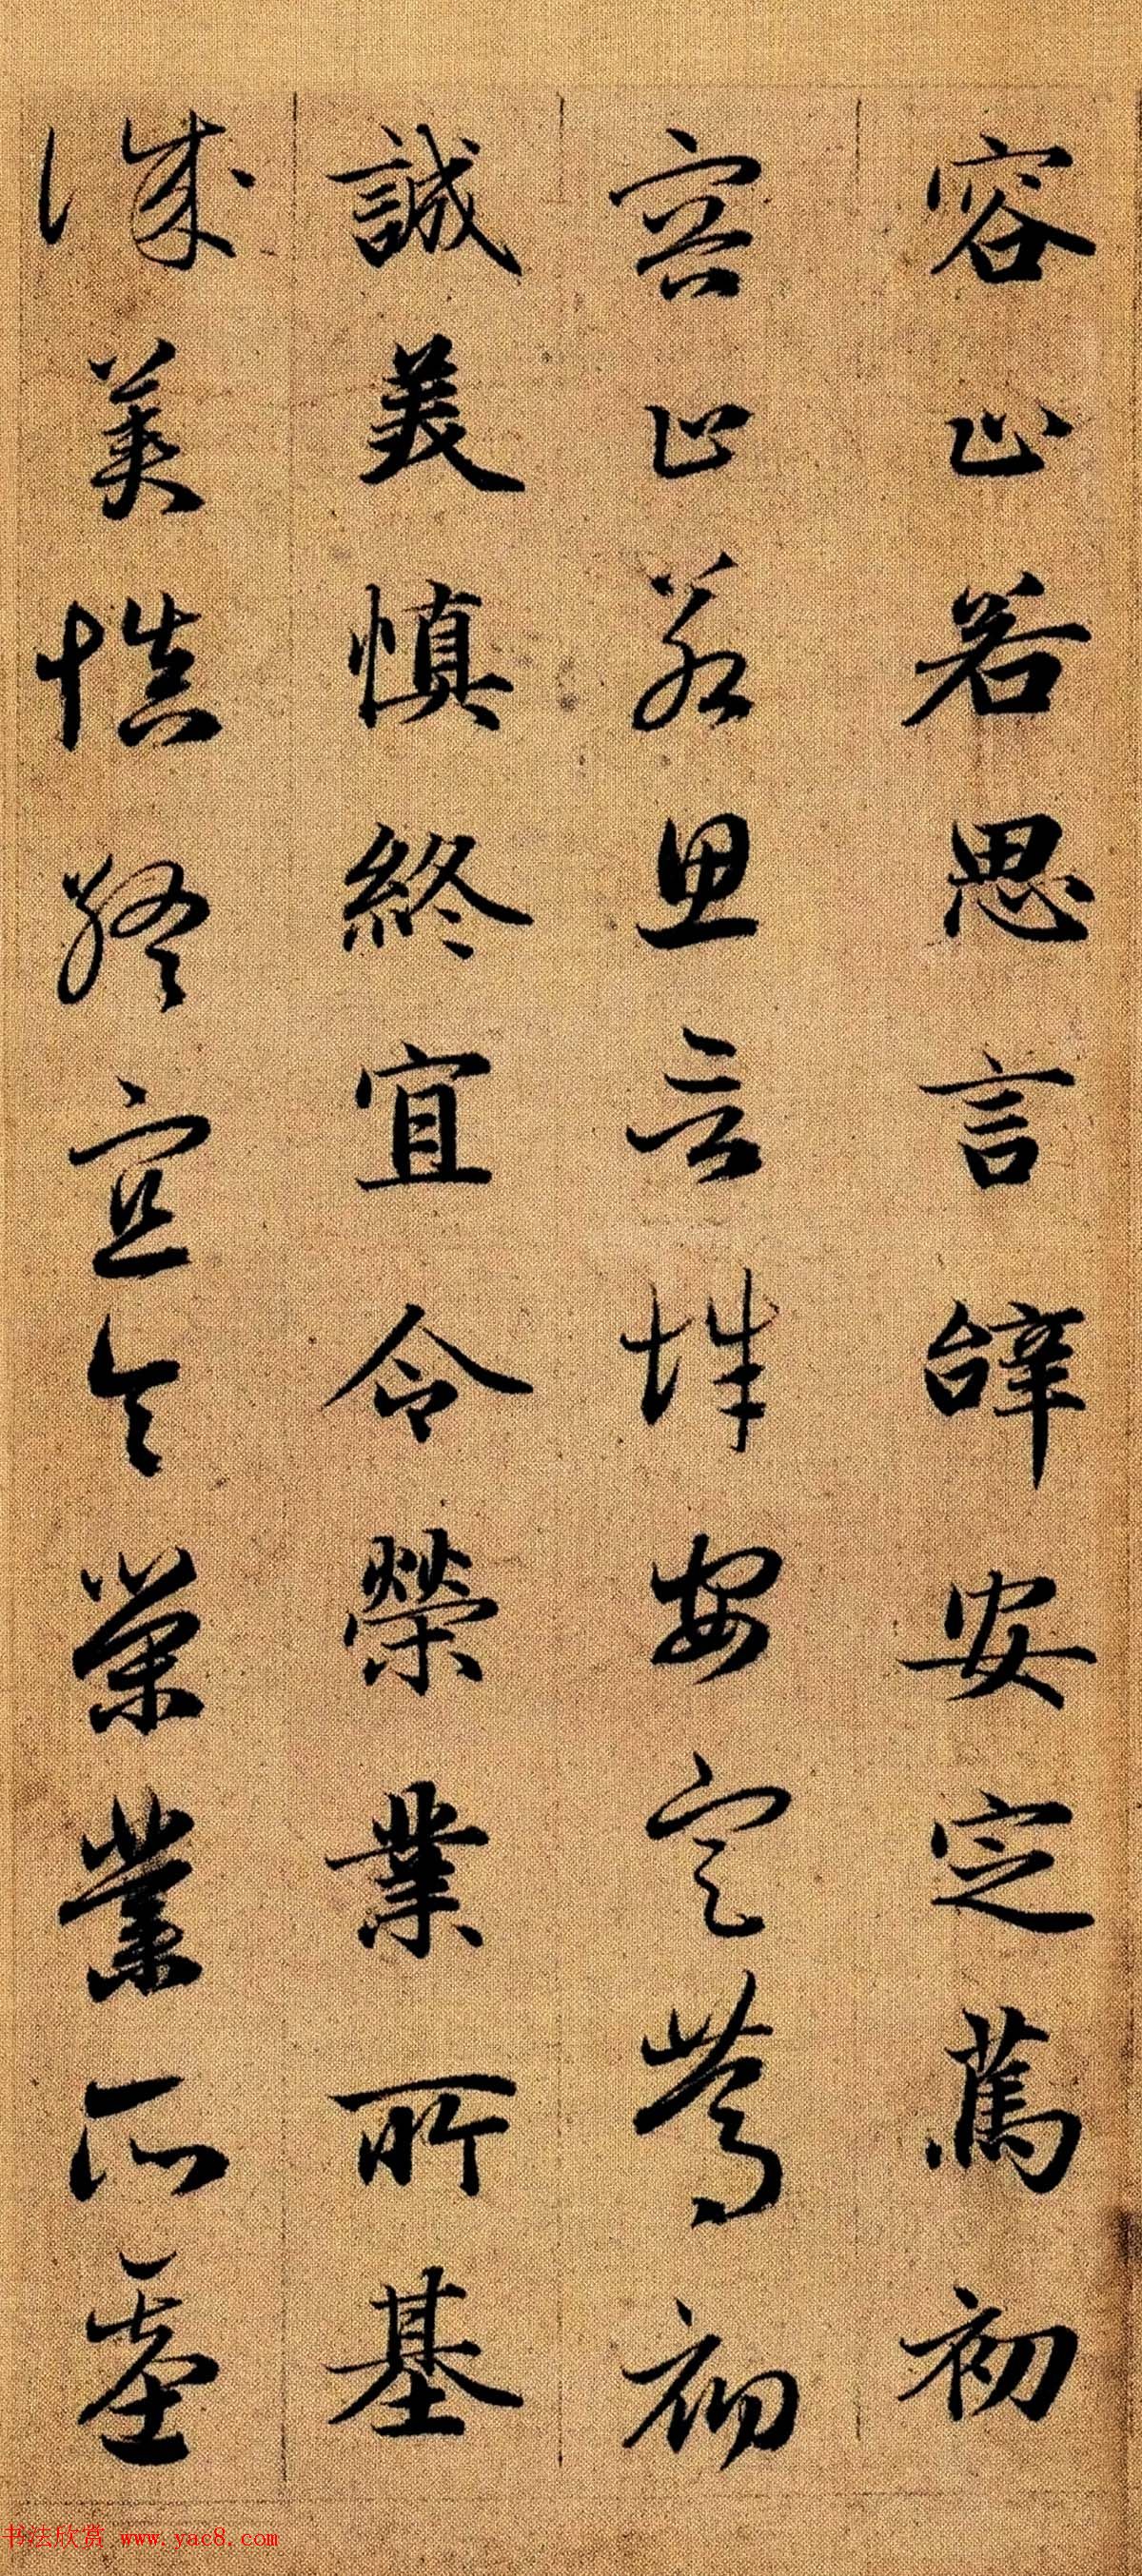 容止若思言辝安定篤初
容止若思言辝安定篤初
誠美慎終宜令榮業所基
誠美慎終宜令榮業所基
书法欣赏 www.yac8.com